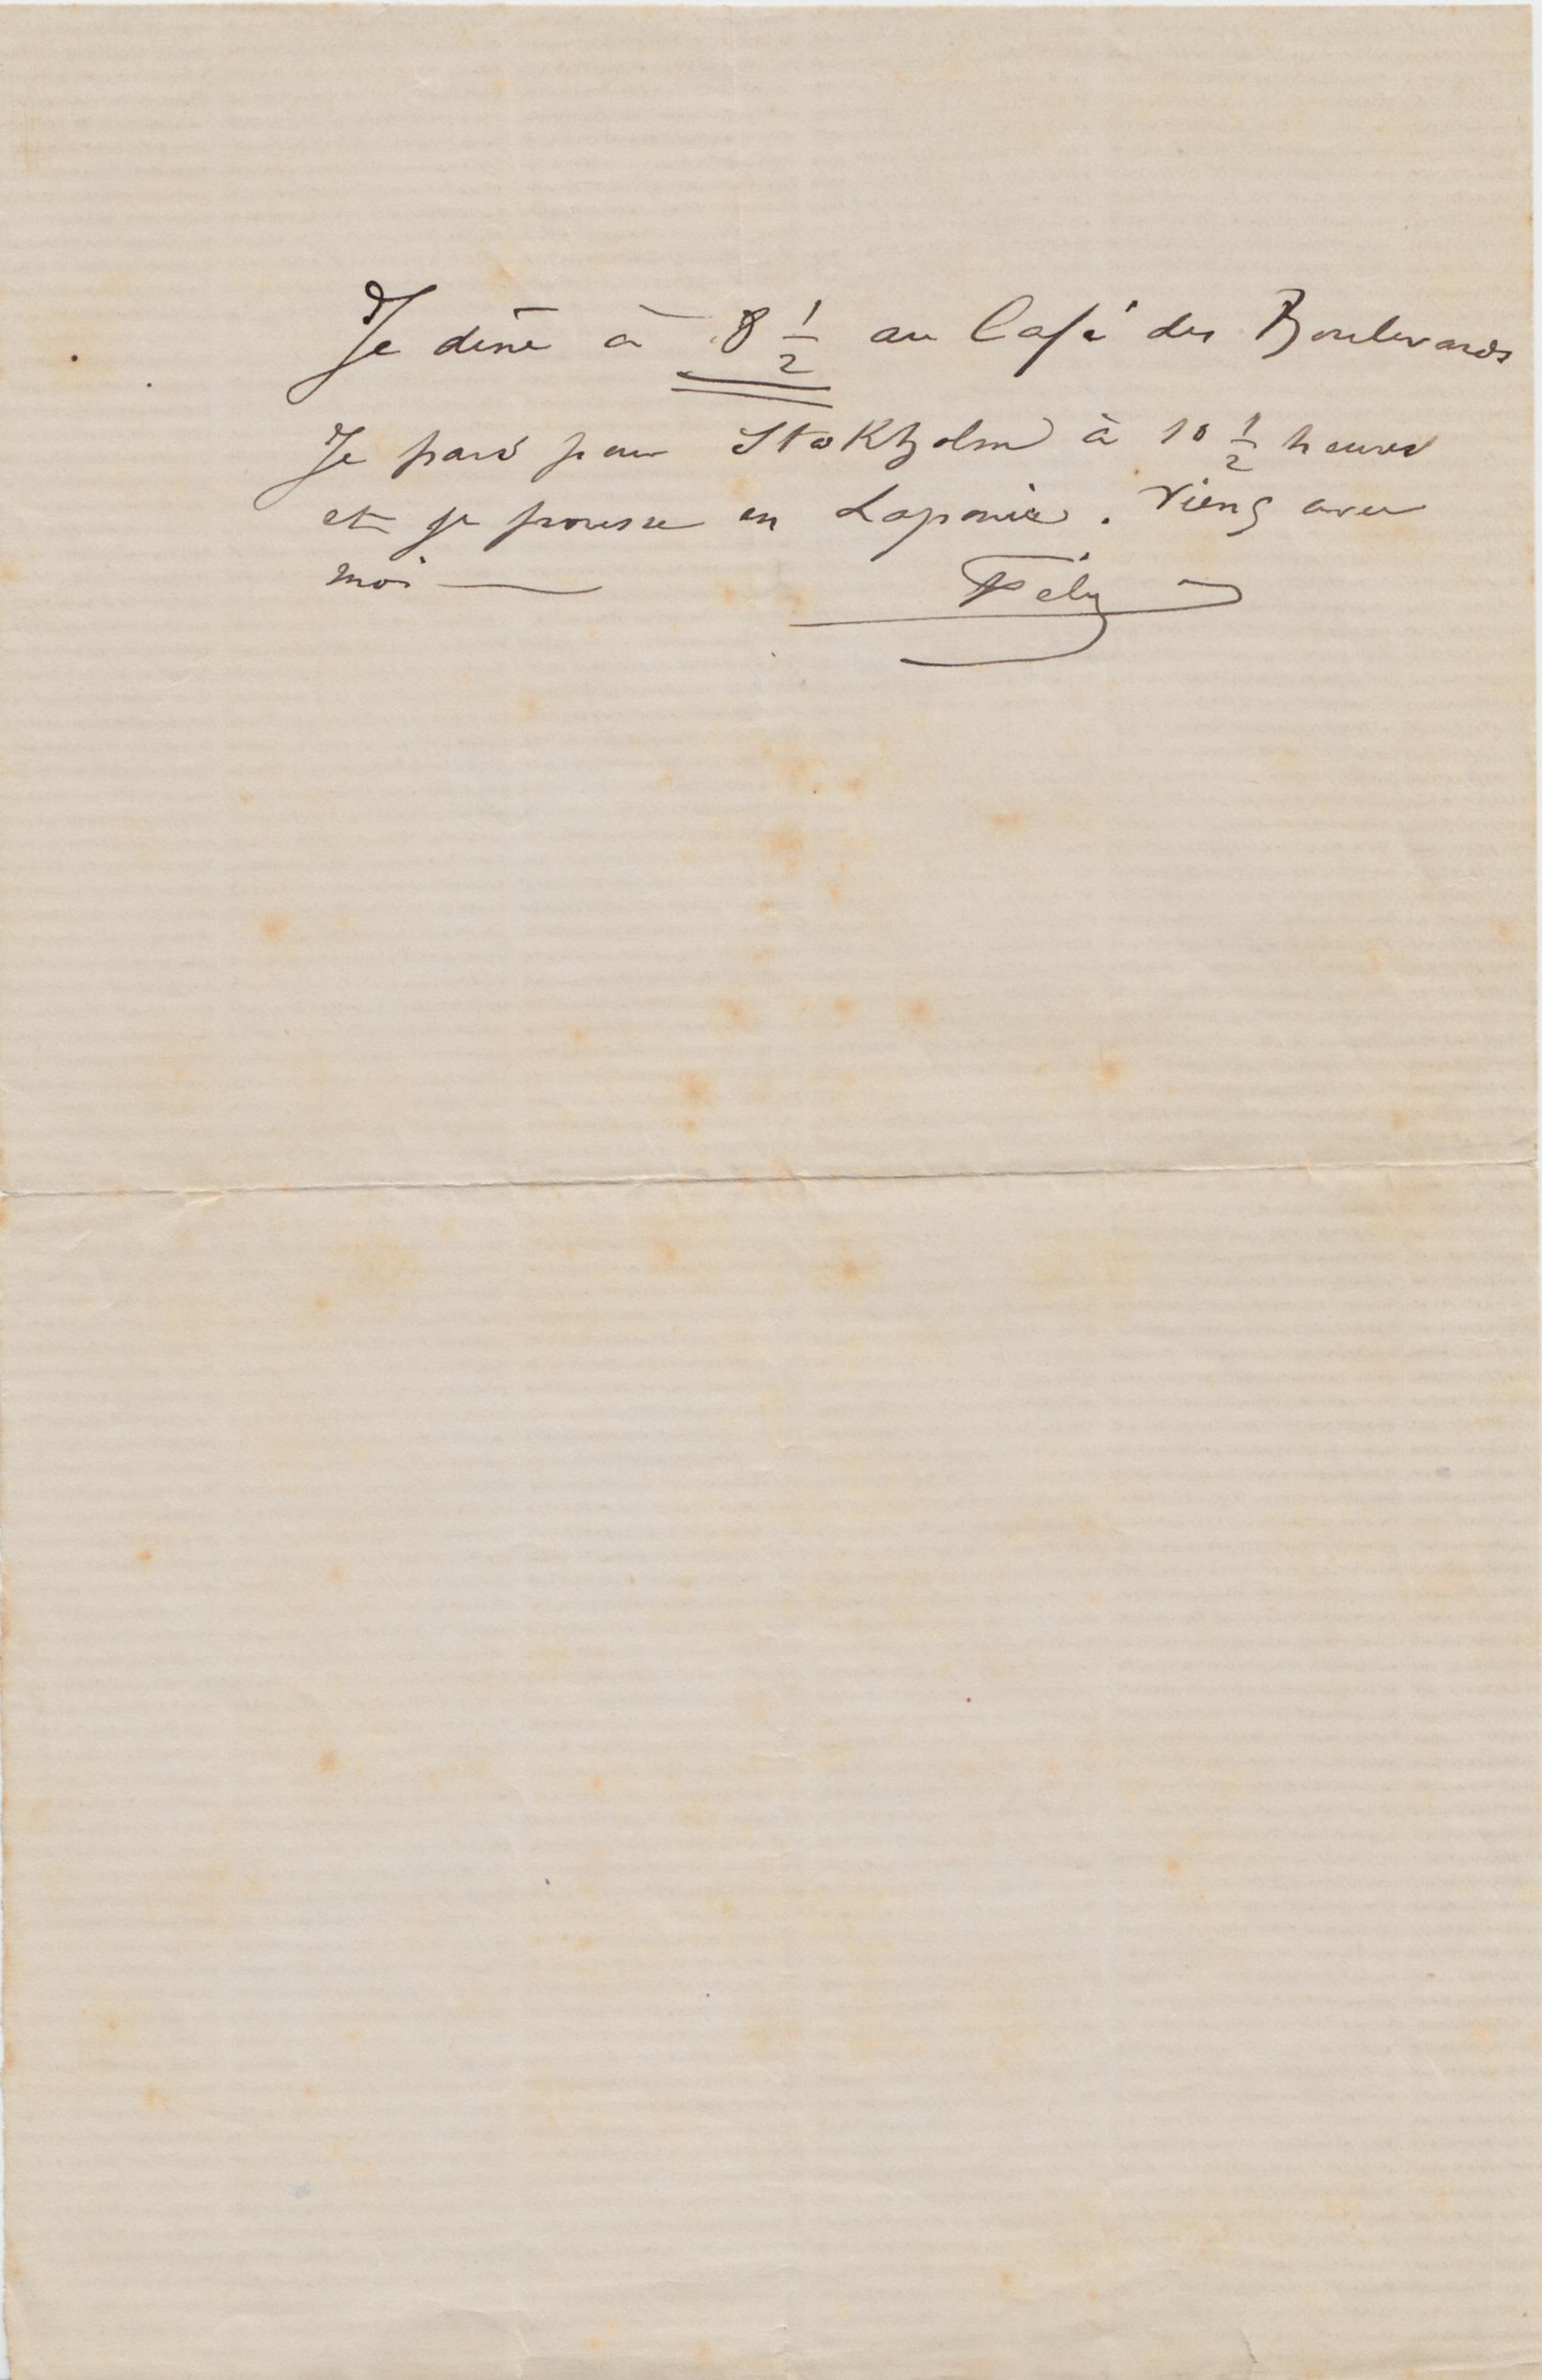 Je dîne à 8 1/2 au Café des Boulevards
Je pars pour Stokholm à 10 1/2 heures
et je pousse en Laponie. Viens avec
moi —
Fély